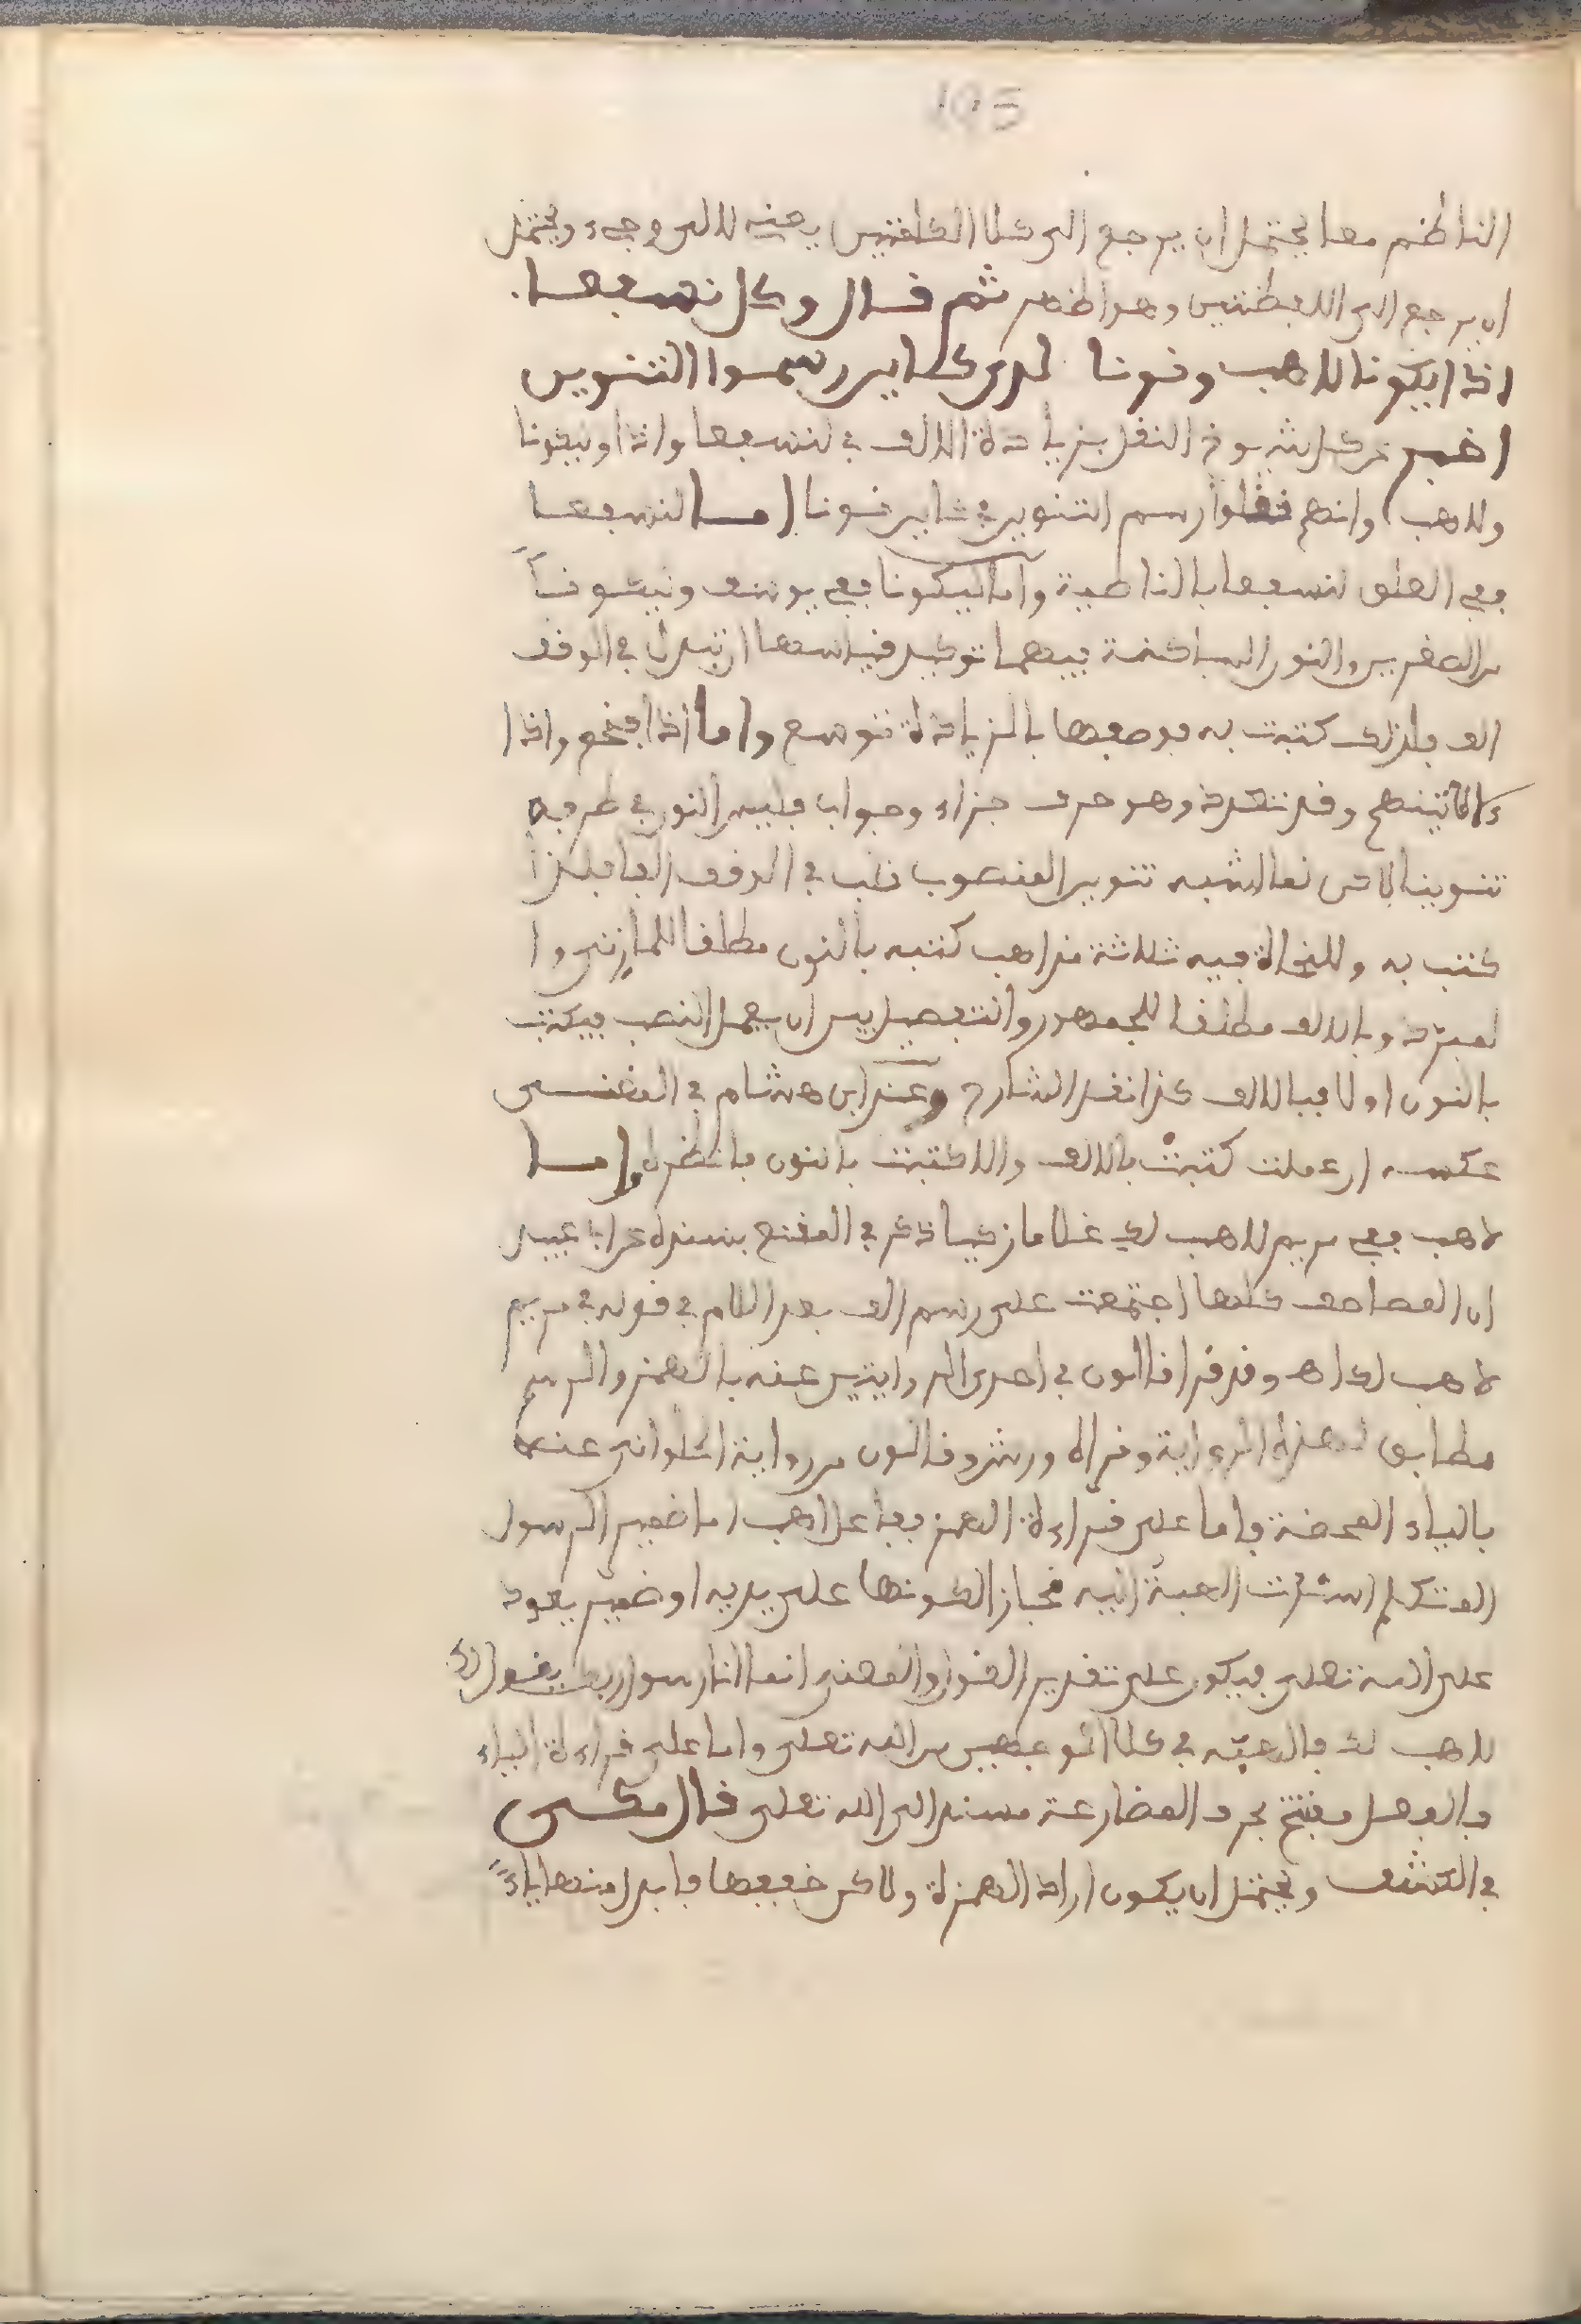 195
الناظم معا يحتمل ان يرجع الى كلا الكلمتين يعني لا الى وجىء ويحتمل
ان يرجع الى اللفظتين وهو اظهر ثم قال وكل نسفعا
اذا يكونا لاهب ونونا لدى كاين رسموا التنوين
اخبر عن كل شيوخ النقل بزيادة الالف في لنسفعا واذا وليكونا
ولاهب وانهم نقلوا رسم التنوين في كاين نونا اما لنسفعا
ففي العلق لنسفعا بالناصية واما ليكونا ففي يوسف وليكونا
من الصغرين والنون الساكنة فيهما توكيد قياسها ان تبدل في الوقف
الف فلذلك كتبت به فوصفها بالزيادة توسع واما اذا فنحو واذا
لاتينهم وقد تقدم وهو حرف جزاء وجواب فليس النون في طرفه
تنوينا لاكن لما اشبه تنوين المنصوب قلب في الوقف الفا فلذا
كتب به وللنحاة فيه ثلاثة مذاهب كتبه بالنون مطلقا للمازني وا
لمبرد وبالالف مطلقا للجمهور والتفصيل بين ان يعمل النصب فيكتب
بالنون اولا فبالالف كذا نقل الشارح وعند ابن هشام في المغنى
عكسه ان عملت كتبت بالالف والا كتبت بالنون فانظره واما
لاهب ففي مريم لاهب لك غلاما زكيا ذكر في المقنع بسنده عن ابي عبيد
ان المصاحف كلها اجتمعت على رسم الف بعد اللام في قوله في مريم
لاهب لك اهـ وقد قرا قالون في احدى الروايتين عنه بالهمز والرسم
مطابق لهذه الرواية وقراه ورش وقالون من رواية الحلواني عنه
بالياء المحضة فاما على قراءة الهمز ففاعل اهب اما ضمير الرسول
المتكلم اسندت الهبة اليه مجازا لكونها على يديه او ضمير يعود
على الله تعلى فيكون على تقدير القول والمعنى انما انا رسول ربك يقول لك
لاهب لك فالهبة في كلا الموضعين من الله تعلى واما على قراءة الياء
فالفعل مفتتح بحرف المضارعة مسند الى الله تعلى قال مكي
في الكشف ويحتمل ان يكون اراد الهمزة ولاكن خففها فابدل منها ياءً